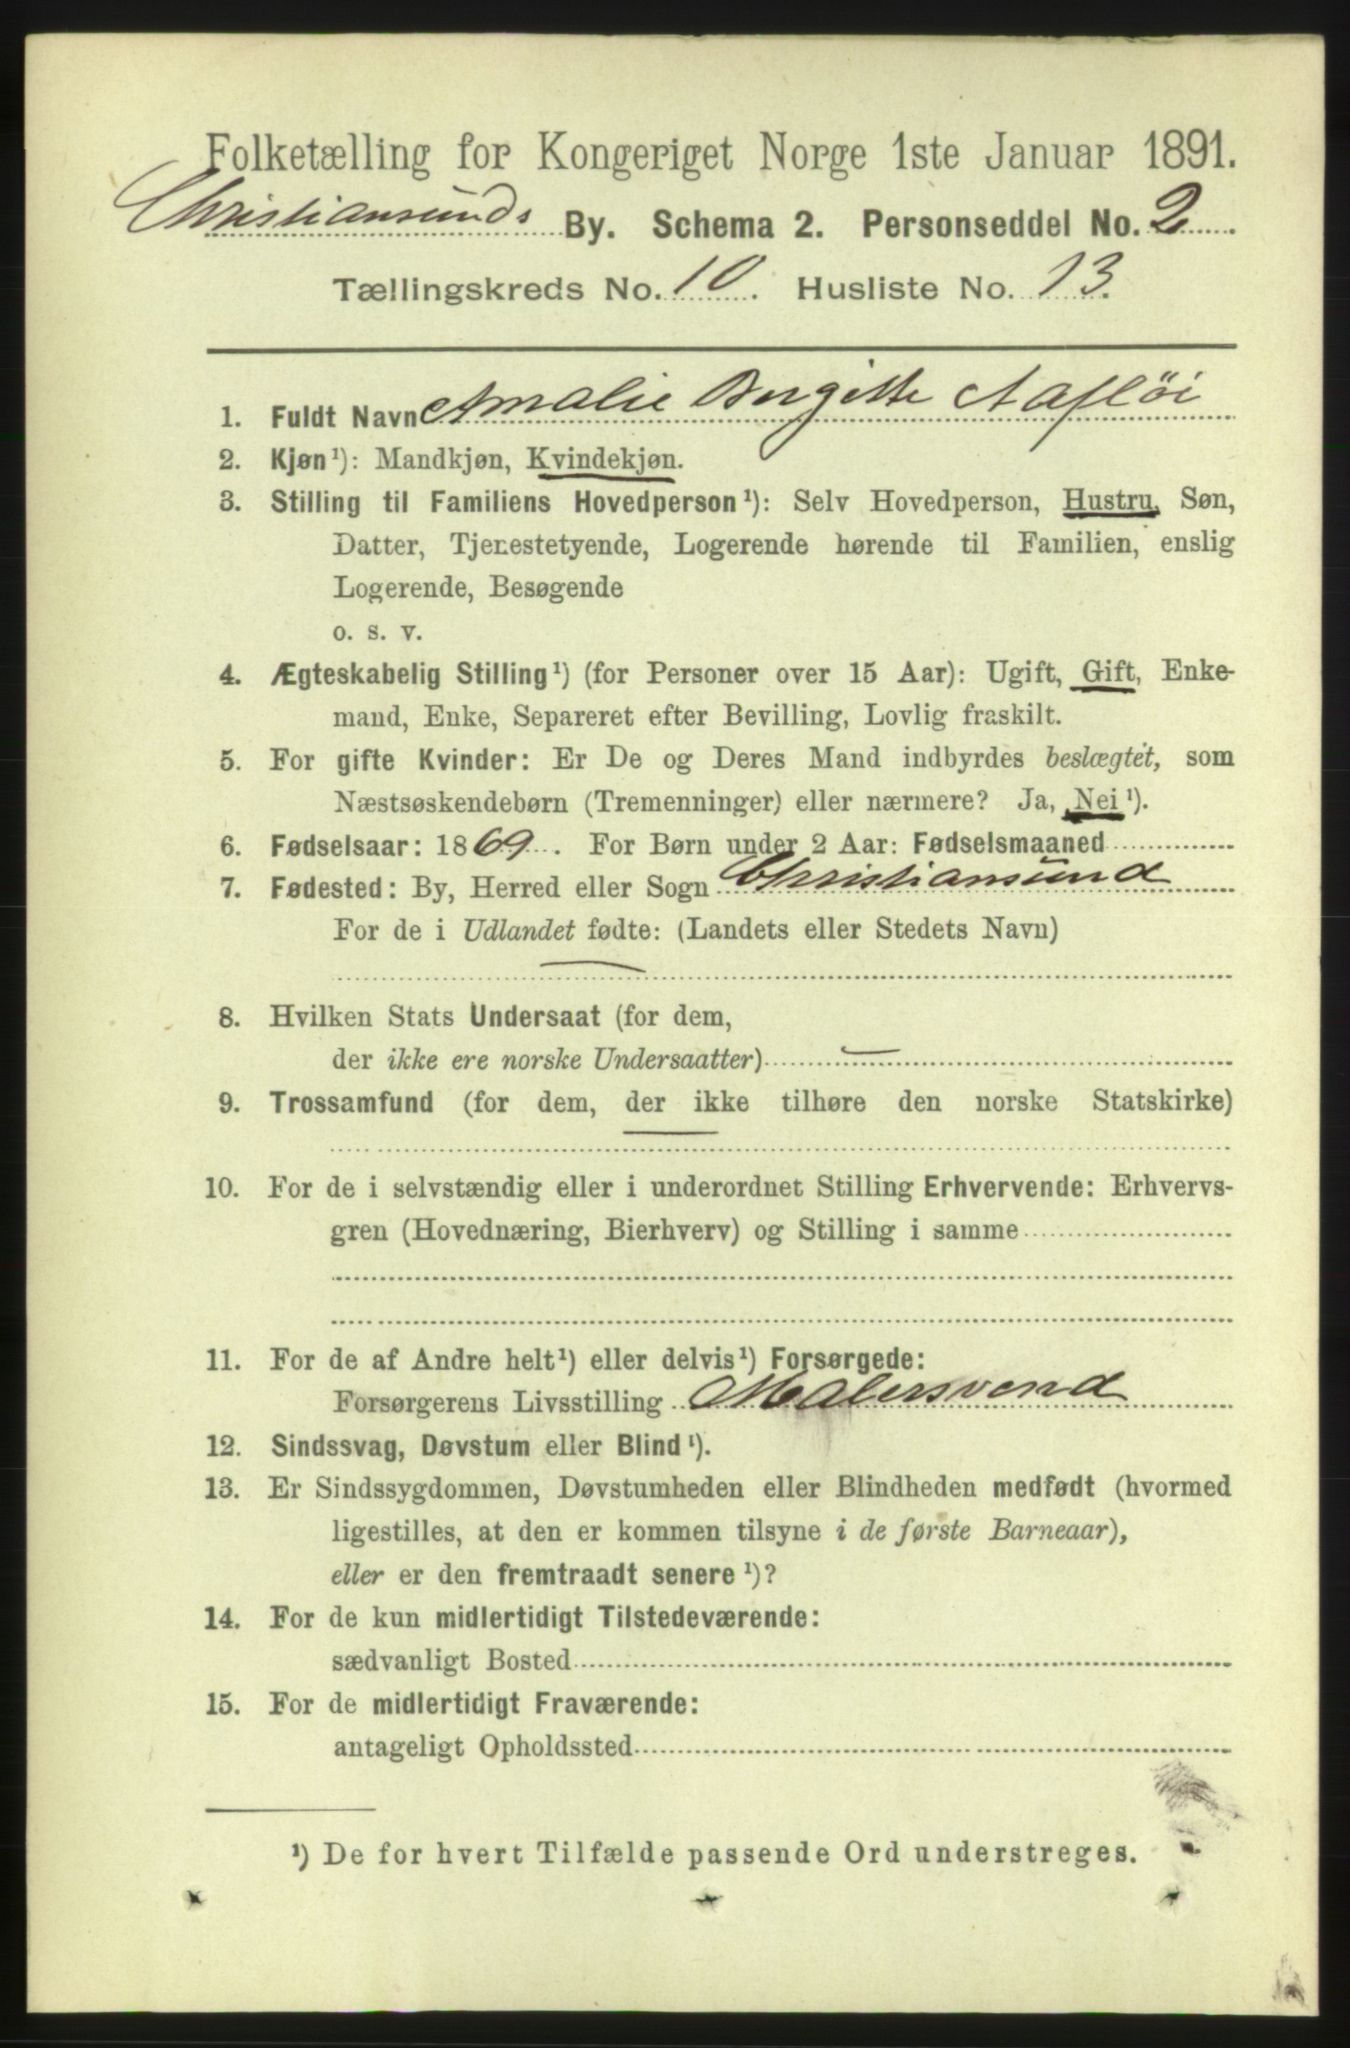 Folketælling for Kongeriget Norge 1ste Januar 1891.
Christiansunds By. Schema 2. Personseddel No. 2
Tællingskreds No. 10. Husliste No. 13.
1. Fuldt Navn Amalie Bergitte Aafløi
2. Kjøn¹): Mandkjøn, Kvindekjøn.
3. Stilling til Familiens Hovedperson¹): Selv Hovedperson, Hustru, Søn,
Datter, Tjenestetyende, Logerende hørende til Familien, enslig
Logerende, Besøgende
o. s. v.
4. Ægteskabelig Stilling¹) (for Personer over 15 Aar): Ugift, Gift, Enke-
mand, Enke, Separeret efter Bevilling, Lovlig fraskilt.
5. For gifte Kvinder: Er De og Deres Mand indbyrdes beslægtet, som
Næstsøskendebørn (Tremenninger) eller nærmere? Ja, Nei¹).
6. Fødselsaar: 1869. For Børn under 2 Aar: Fødselsmaaned
7. Fødested: By, Herred eller Sogn Christiansund
For de i Udlandet fødte: (Landets eller Stedets Navn)
8. Hvilken Stats Undersaat (for dem,
der ikke ere norske Undersaatter)
9. Trossamfund (for dem, der ikke tilhøre den norske Statskirke)
10. For de i selvstændig eller i underordnet Stilling Erhvervende: Erhvervs-
gren (Hovednæring, Bierhverv) og Stilling i samme
11. For de af Andre helt¹) eller delvis¹) Forsørgede:
Forsørgerens Livsstilling Malersvend
12. Sindssvag, Døvstum eller Blind¹).
13. Er Sindssygdommen, Døvstumheden eller Blindheden medfødt (hvormed
ligestilles, at den er kommen tilsyne i de første Barneaar),
eller er den fremtraadt senere¹)?
14. For de kun midlertidigt Tilstedeværende:
sædvanligt Bosted
15. For de midlertidigt Fraværende:
antageligt Opholdssted
¹) De for hvert Tilfælde passende Ord understreges.